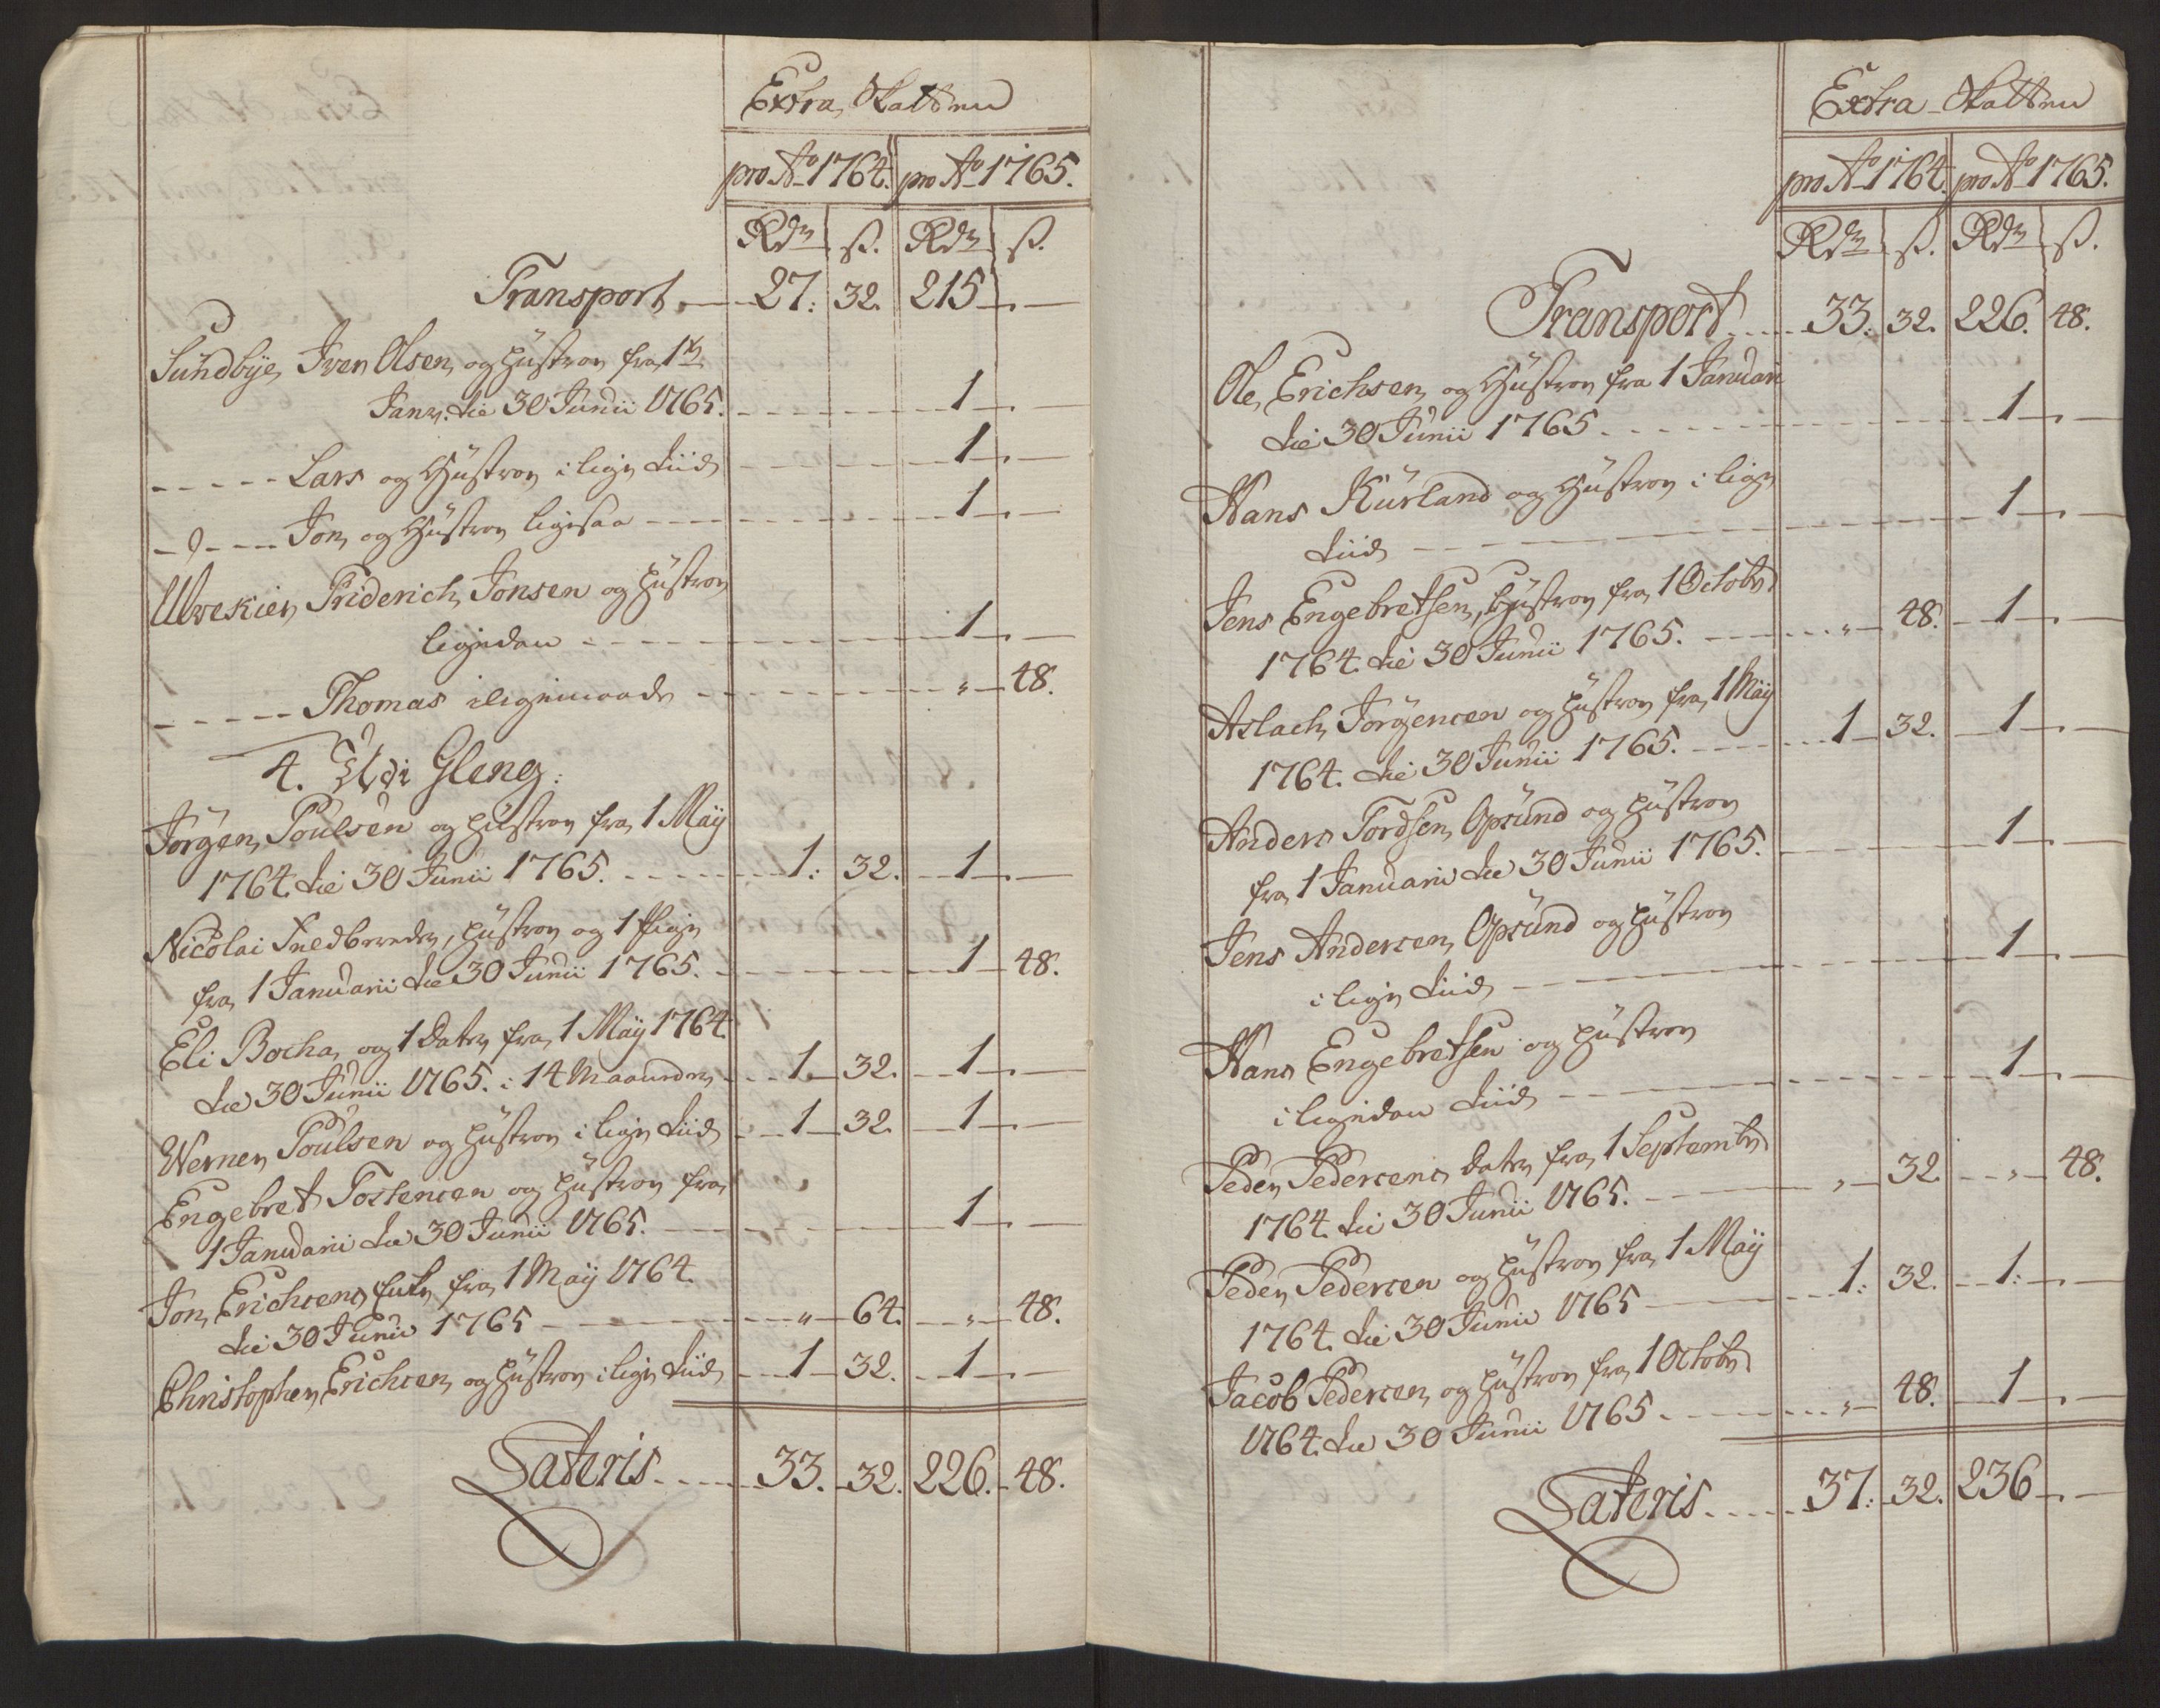 Extra Skatten
pro Ao 1764. pro Ao 1765.
Rdr ß. Rdr ß.
Transport 27: 32. 215 -
Sundbÿe, Iver Olsen, og Hustroe fra 1te
Janr. til 30 Junii 1765. 1 -
Lars og Hustroe i lige tiid 1 -
- d - Jon, og Hustroe ligesaa 1 -
Friderich Jonsen og Hustroe
ligedan 1 -
Thomas i ligemaade " 48.
4. Udi Gleng:
Jörgen Poulsen og Hustroe fra 1 Maÿ
1764. til 30 Junii 1765. 1: 32. 1 -
Nicolai Hustroe og 1 Pige
fra 1 Januarii til 30 Junii 1765. 1 48.
Eli Bocha, og 1 Dater fra 1 Maÿ 1764
til 30 Junii 1765. i 14 Maaneder 1. 32. 1 -
Werner Poulsen og Hustroe i lige tiid 1 32. 1 -
Engebret Tostensen og Hustroe fra
1 Januarii til 30 Junii 1765. 1 -
Jon Erichsens Enke fra 1 Maÿ 1764.
til 30 Junii 1765 " 64. " 48.
Christopher Erichsen og Hustroe i lige tiid 1 32. 1 -
Lateris 33. 32. 226. 48.
Extra Skatten
pro Ao 1764. pro Ao 1765.
Rdr ß. Rdr ß.
Transport 33. 32. 226. 48.
Ole Erichsen og Hustroe fra 1 Januari
til 30 Junii 1765 1 -
Hans Kürland og Hustroe i lige
tiid 1 -
Jens Engebretsen, Hustroe fra 1 Octobr
1764. til 30 Junii 1765. " 48. 1 -
Aslach Jörgensen og Hustroe fra 1 Maÿ
1764. til 30 Junii 1765. 1 32. 1 -
Anders Tordsen Opsund og Hustroe
fra 1 Januarii til 30 Junii 1765. 1 -
Jens Andersen Opsund og Hustroe
i lige tiid 1 -
Hans Engebretsen og Hustroe
i ligedan tiid 1 -
Peder Pedersens Dater fra 1 Septembr
1764. til 30 Junii 1765. " 32. " 48.
Peder Pedersen og Hustroe fra 1 Maÿ
1764. til 30 Junii 1765 1: 32. 1: -
Jacob Pedersen og Hustroe fra 1 Octobr
1764. til 30 Junii 1765. " 48. 1 -
Lateris 37: 32. 236 -